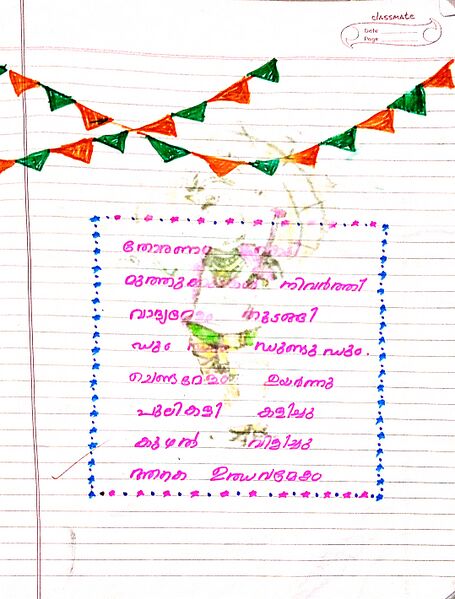 classmate
Date
Page
തോരണം
മുത്തുക്കുട നിവർത്തി
വാദ്യമേളം തുടങ്ങി
ഡും ഡുണ്ടു ഡും.
ചെണ്ടമേളം ഉയർന്നു
പുലികളി കളിച്ചു
കുഴൽ വിളിച്ചു
ആകെ ഉത്സവമേളം